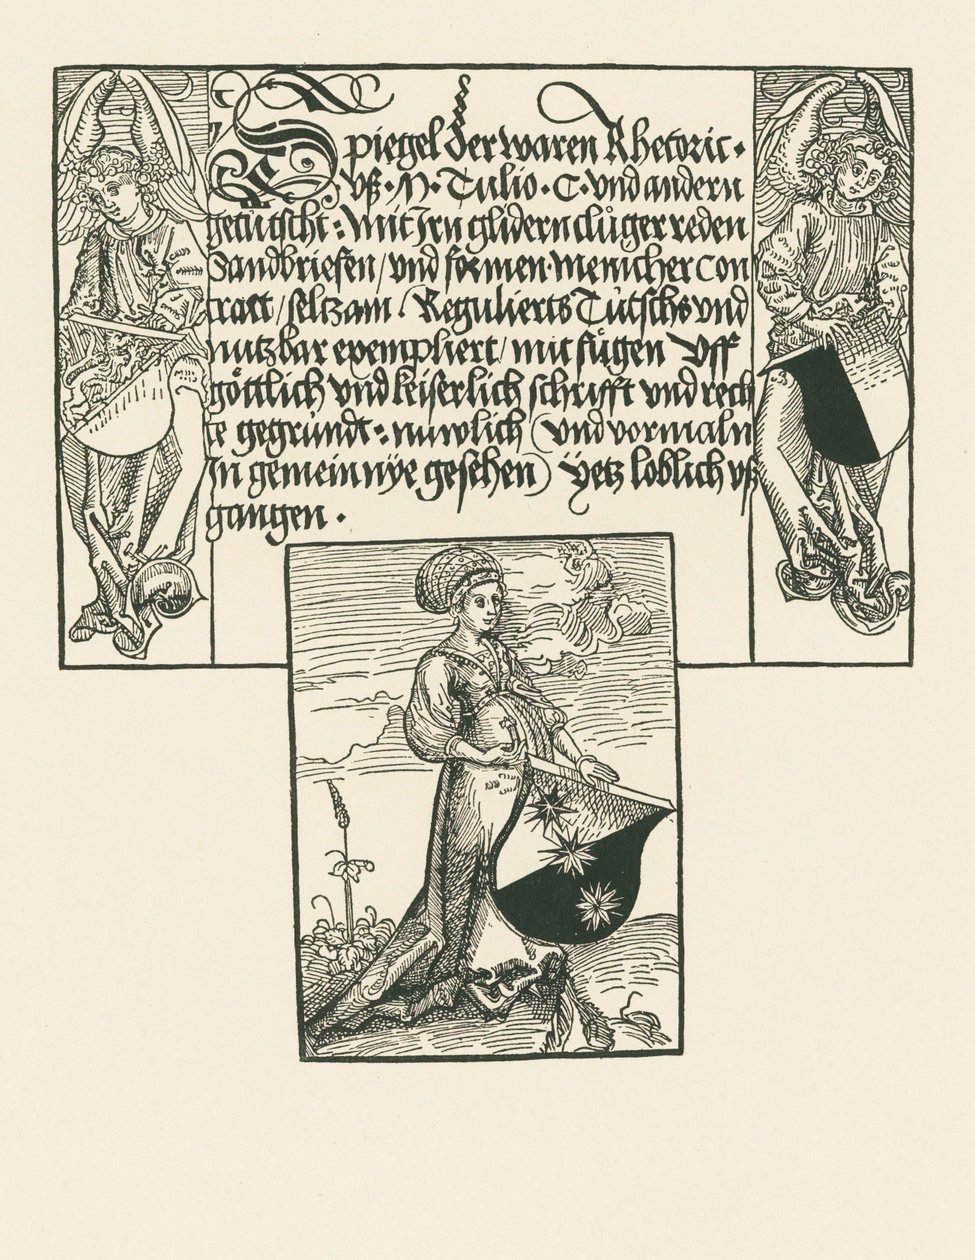 Spiegel der waren Rhetoric ·
vß · M · Tulio · C · vnd andern
getütscht : Mit Irn glidern clůger reden
Sandbriefen / vnd formen · menicher con
tract / seltzam · Regulierts Tütschs vnd
nutzbar exempliert / mit fügen vff
göttlich vnd keiserlich schrifft vnd rech
te gegründt : nuwlich (vnd vormaln
in gemein nÿe gesehen) ÿetz loblich vß
gangen ·